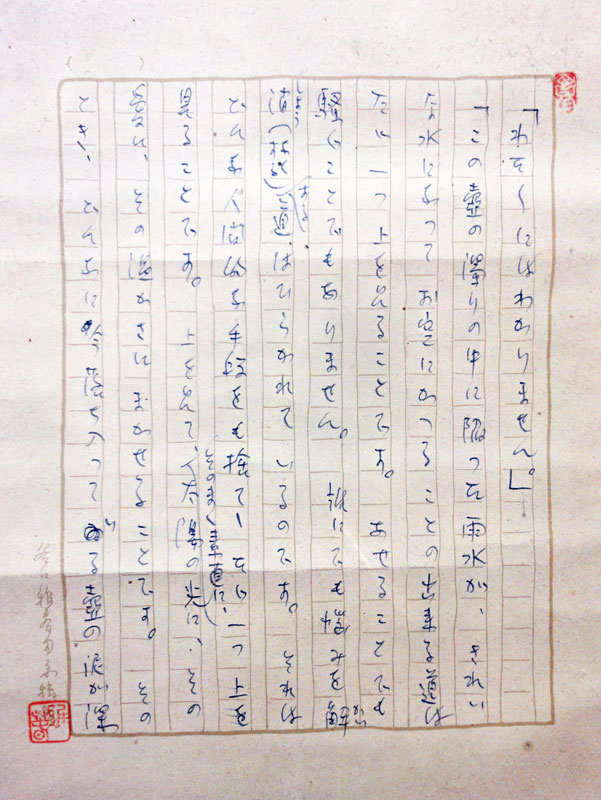 「わたくしにはわかりません。」
「この壺の濁りの中に陥つた雨水が、きれい
な水になつて お空にかへる ことの出来る道は
たゞ一つ上を見ることです。 あせることでも
騒ぐことでもありません。 誰にでも悩みを解か
道はひらかれて いるのです。 それは
どんな人間的な手段をも捨てゝ たゞ一つ上を
見ることです。 上を見て、太陽の光に、その
そのまゝ(素直に、)
その温かさに まかせることです。 その
とき、どんなに つて ゐる壺の泥が深